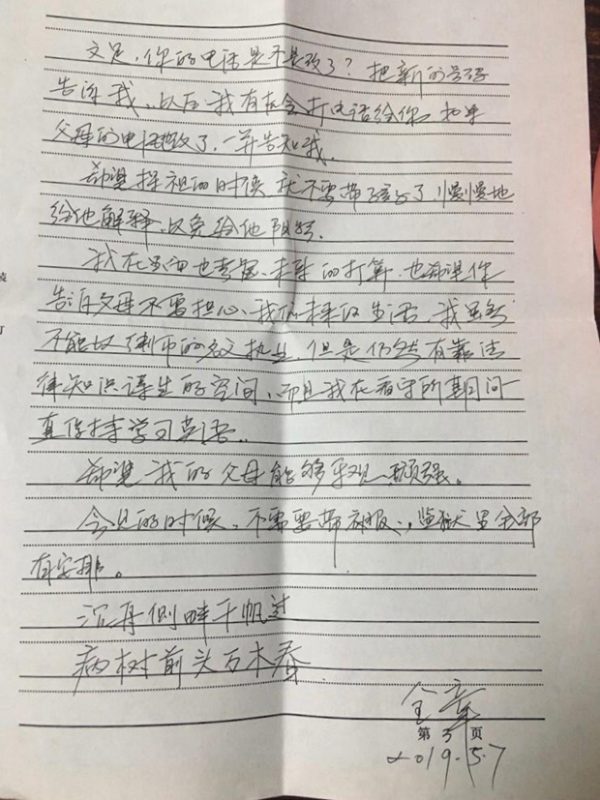 文足，你的电话是不是改了？把新的号码
告诉我，以后我有机会打电话给你，如果
父母的电话改了，一并告知我。
希望探视的时候，就不要带孩子了，慢慢地
给他解释，以免给他阴影。
我在里面也考虑未来的打算，也希望你
告诉父母不要担心我们未来的生活，我虽然
不能以律师的名义执业，但是仍然有靠法
律知识谋生的空间，而且我在看守所期间一
直坚持学习英语。
希望我的父母能够乐观、顽强。
会见的时候，不需要带衣服，监狱里全部
有安排。
沉舟侧畔千帆过
病树前头万木春
全章
第3页
2019.5.7